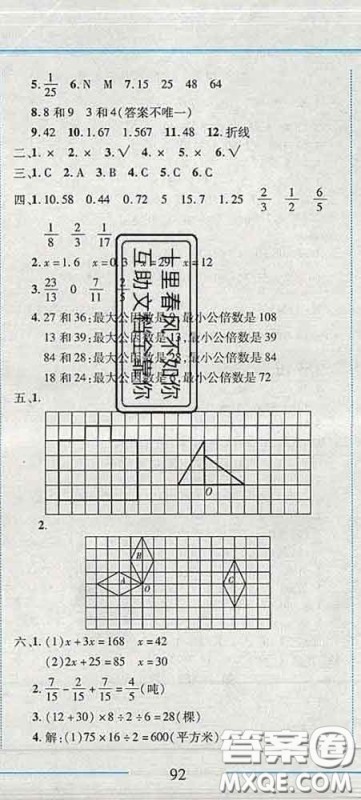 5. 1/25 6. N M 7. 15 25 48 64
8. 8 和 9 3 和 4(答案不唯一)
9. 42 10. 1.67 1.567 11. 48 12. 折线
二、1. × 2. × 3. √ 4. × 5. × 6. √
三、1. C 2. A 3. B 4. C 5. C
四、1. 10.58 0.44 0.72 5 15 1.25 2/3 1/2 6/5
1/8 2/3 1/17
2. x=1.6 x=0.3 x=29 x=12
3. 23/13 0 7/11 2/5
4. 27 和 36:最大公因数是 9,最小公倍数是 108
13 和 39:最大公因数是 13,最小公倍数是 39
84 和 28:最大公因数是 28,最小公倍数是 84
18 和 24:最大公因数是 ,最小公倍数是 72
十里春风不如你
互助文档全靠你
五、1.
O
2.
B
A
O
C
六、1. (1)x+3x=168 x=42
(2)2x+25=85 x=30
2. 7/15-2/15+7/15=4/5(吨)
3. (12+30)×8÷2÷6=28(棵)
4. 解:(1)75×16÷2=600(平方米)
92
答案圈
MXQE.COM